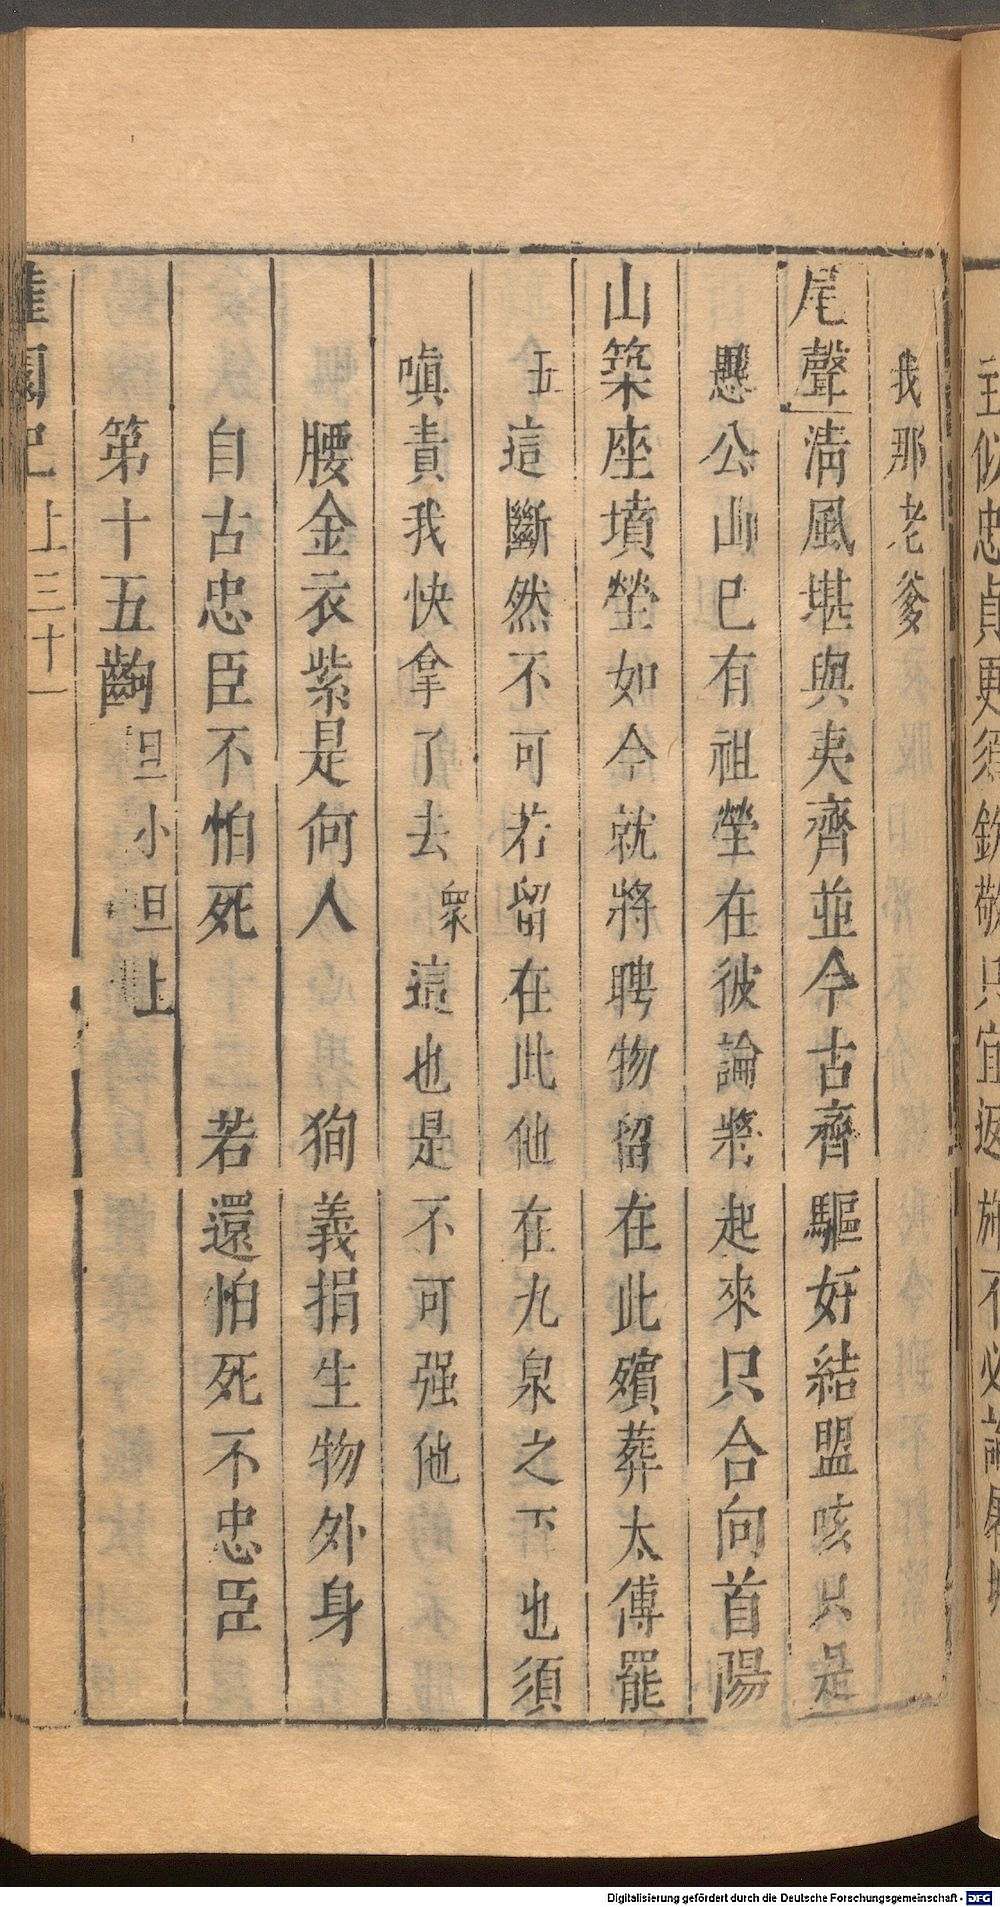 主似忠貞更須欽敬只宜返旆不必
我那老爹
尾聲清風堪與夷齊並今古齊驅好結盟咳只是
愚公山已有祖塋在彼論將起來只合向首陽
山築座墳塋如今就將聘物留在此殯葬太傅罷
五這斷然不可若留在此他在九泉之下也須
嗔責我快拿了去衆這也是不可强他
腰金衣紫是何人 狥義捐生物外身
自古忠臣不怕死 若還怕死不忠臣
第十五齣 旦小旦上
園記 上 三十一
Digitalisierung gefördert durch die Deutsche Forschungsgemeinschaft - DFG